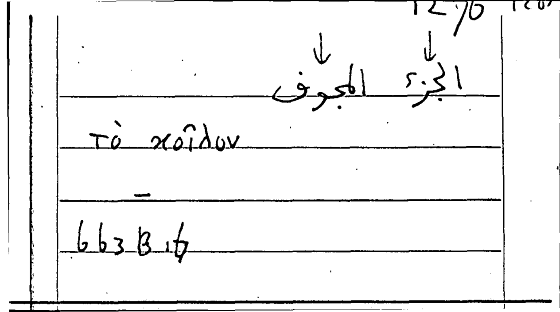 الجزء المجوف
τὸ κοῖλον
663 B 16